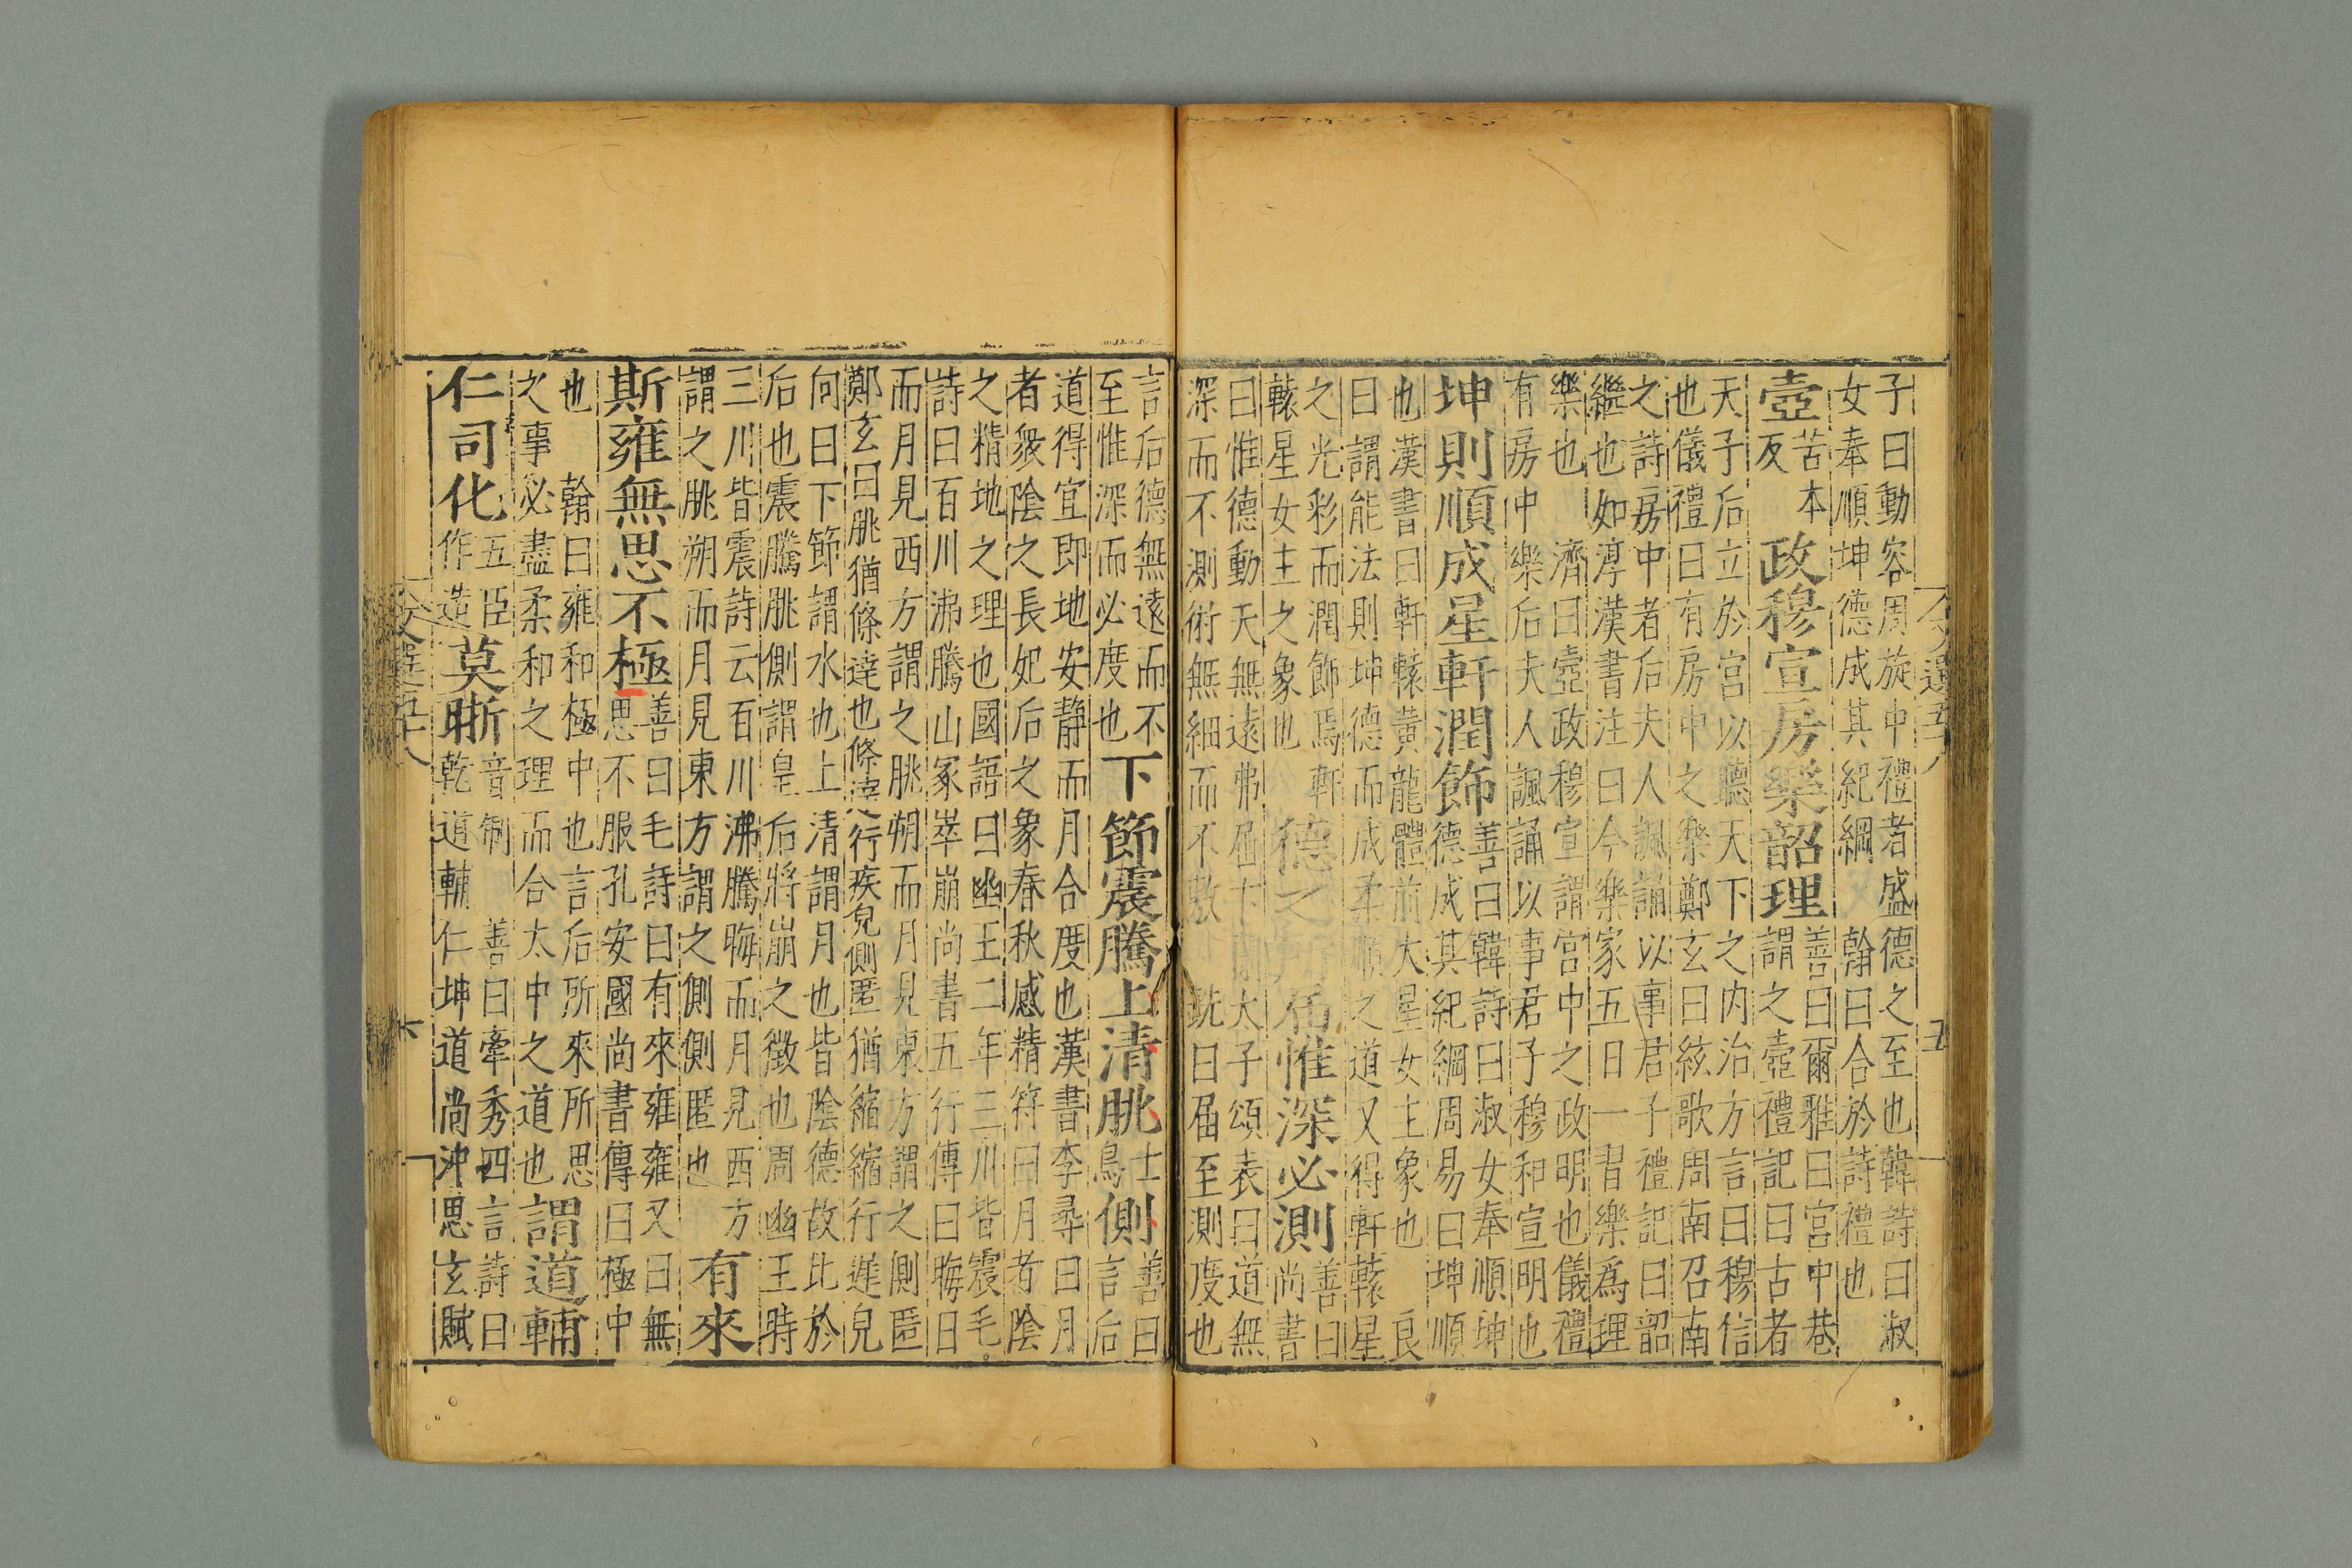 子曰動容周旋中禮者盛德之至也韓詩曰淑
女奉順坤德成其紀綱 翰曰合於詩禮也
壼苦本反政穆宣房樂韶理善曰爾雅曰宮中巷
謂之壼禮記曰古者
天子后立於宮以聽天下之内治方言曰穆信
也儀禮曰有房中之樂鄭玄曰絃歌周南召南
之詩房中者后夫人諷誦以事君子禮記曰韶
繼也如淳漢書注曰今樂家五日一習樂爲理
樂也 濟曰壼政穆宣謂宮中之政明也儀禮
有房中樂后夫人諷誦以事君子穆和宣明也
坤則順成星軒潤飾善曰韓詩曰淑女奉順坤
德成其紀綱周易曰坤順
也漢書曰軒轅黃龍體前大星女主象也 良
曰謂能法則坤德而成柔順之道又得軒轅星
之光彩而潤飾焉軒
轅星女主之象也德之所屆惟深必測善曰
尚書
曰惟德動天無遠弗屆卞蘭太子頌表曰道無
深而不測術無細而不敷 銑曰屆至測度也
文選五十八 五
言后德無遠而不
至惟深而必度也下節震騰上清朓士鳥側善曰
言后
道得宜即地安静而月合度也漢書李尋曰月
者衆陰之長妃后之象春秋感精符曰月者陰
之精地之理也國語曰幽王二年三川皆震毛
詩曰百川沸騰山冢崒崩尚書五行傳曰晦日
而月見西方謂之朓朔而月見東方謂之側匿
鄭玄曰朓猶條達也條達行疾皃側匿猶縮縮行遲皃
向曰下節謂水也上清謂月也皆陰德故比於
后也震騰朓側謂皇后將崩之徵也周幽王時
三川皆震詩云百川沸騰晦而月見西方
謂之朓朔而月見東方謂之側側匿也有來
斯雍無思不極善曰毛詩曰有來雍雍又曰無
思不服孔安國尚書傳曰極中
也 翰曰雍和極中也言后所來所思
之事必盡柔和之理而合太中之道也謂道輔
仁司化五臣作造莫晣音制 善曰牽秀四言詩曰
乾道輔仁坤道尚沖思玄賦
文選五十八 六